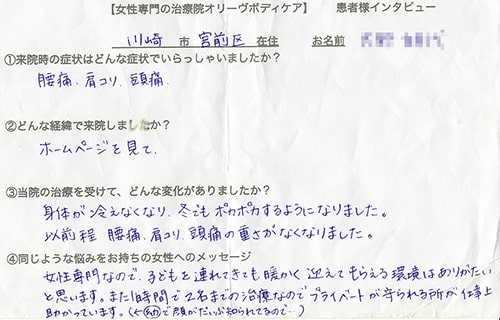 【女性専門の治療院オリーヴボディケア】 患者様インタビュー
川崎 市 宮前区 在住 お名前
①来院時の症状はどんな症状でいらっしゃいましたか？
腰痛、肩コリ、頭痛
②どんな経緯で来院しましたか？
ホームページを見て、
③当院の治療を受けて、どんな変化がありましたか？
身体が冷えなくなり、冬でもポカポカするようになりました。
以前程 腰痛、肩コリ、頭痛の重さがなくなりました。
④同じような悩みをお持ちの女性へのメッセージ
女性専門なので、子どもを連れてきても暖かく迎えてもらえる環境はありがたい
と思います。また1時間で2名までの治療なのでプライベートが守られる所が仕事上
助かっています。(←幼で顔がだいぶ知られてるので…)